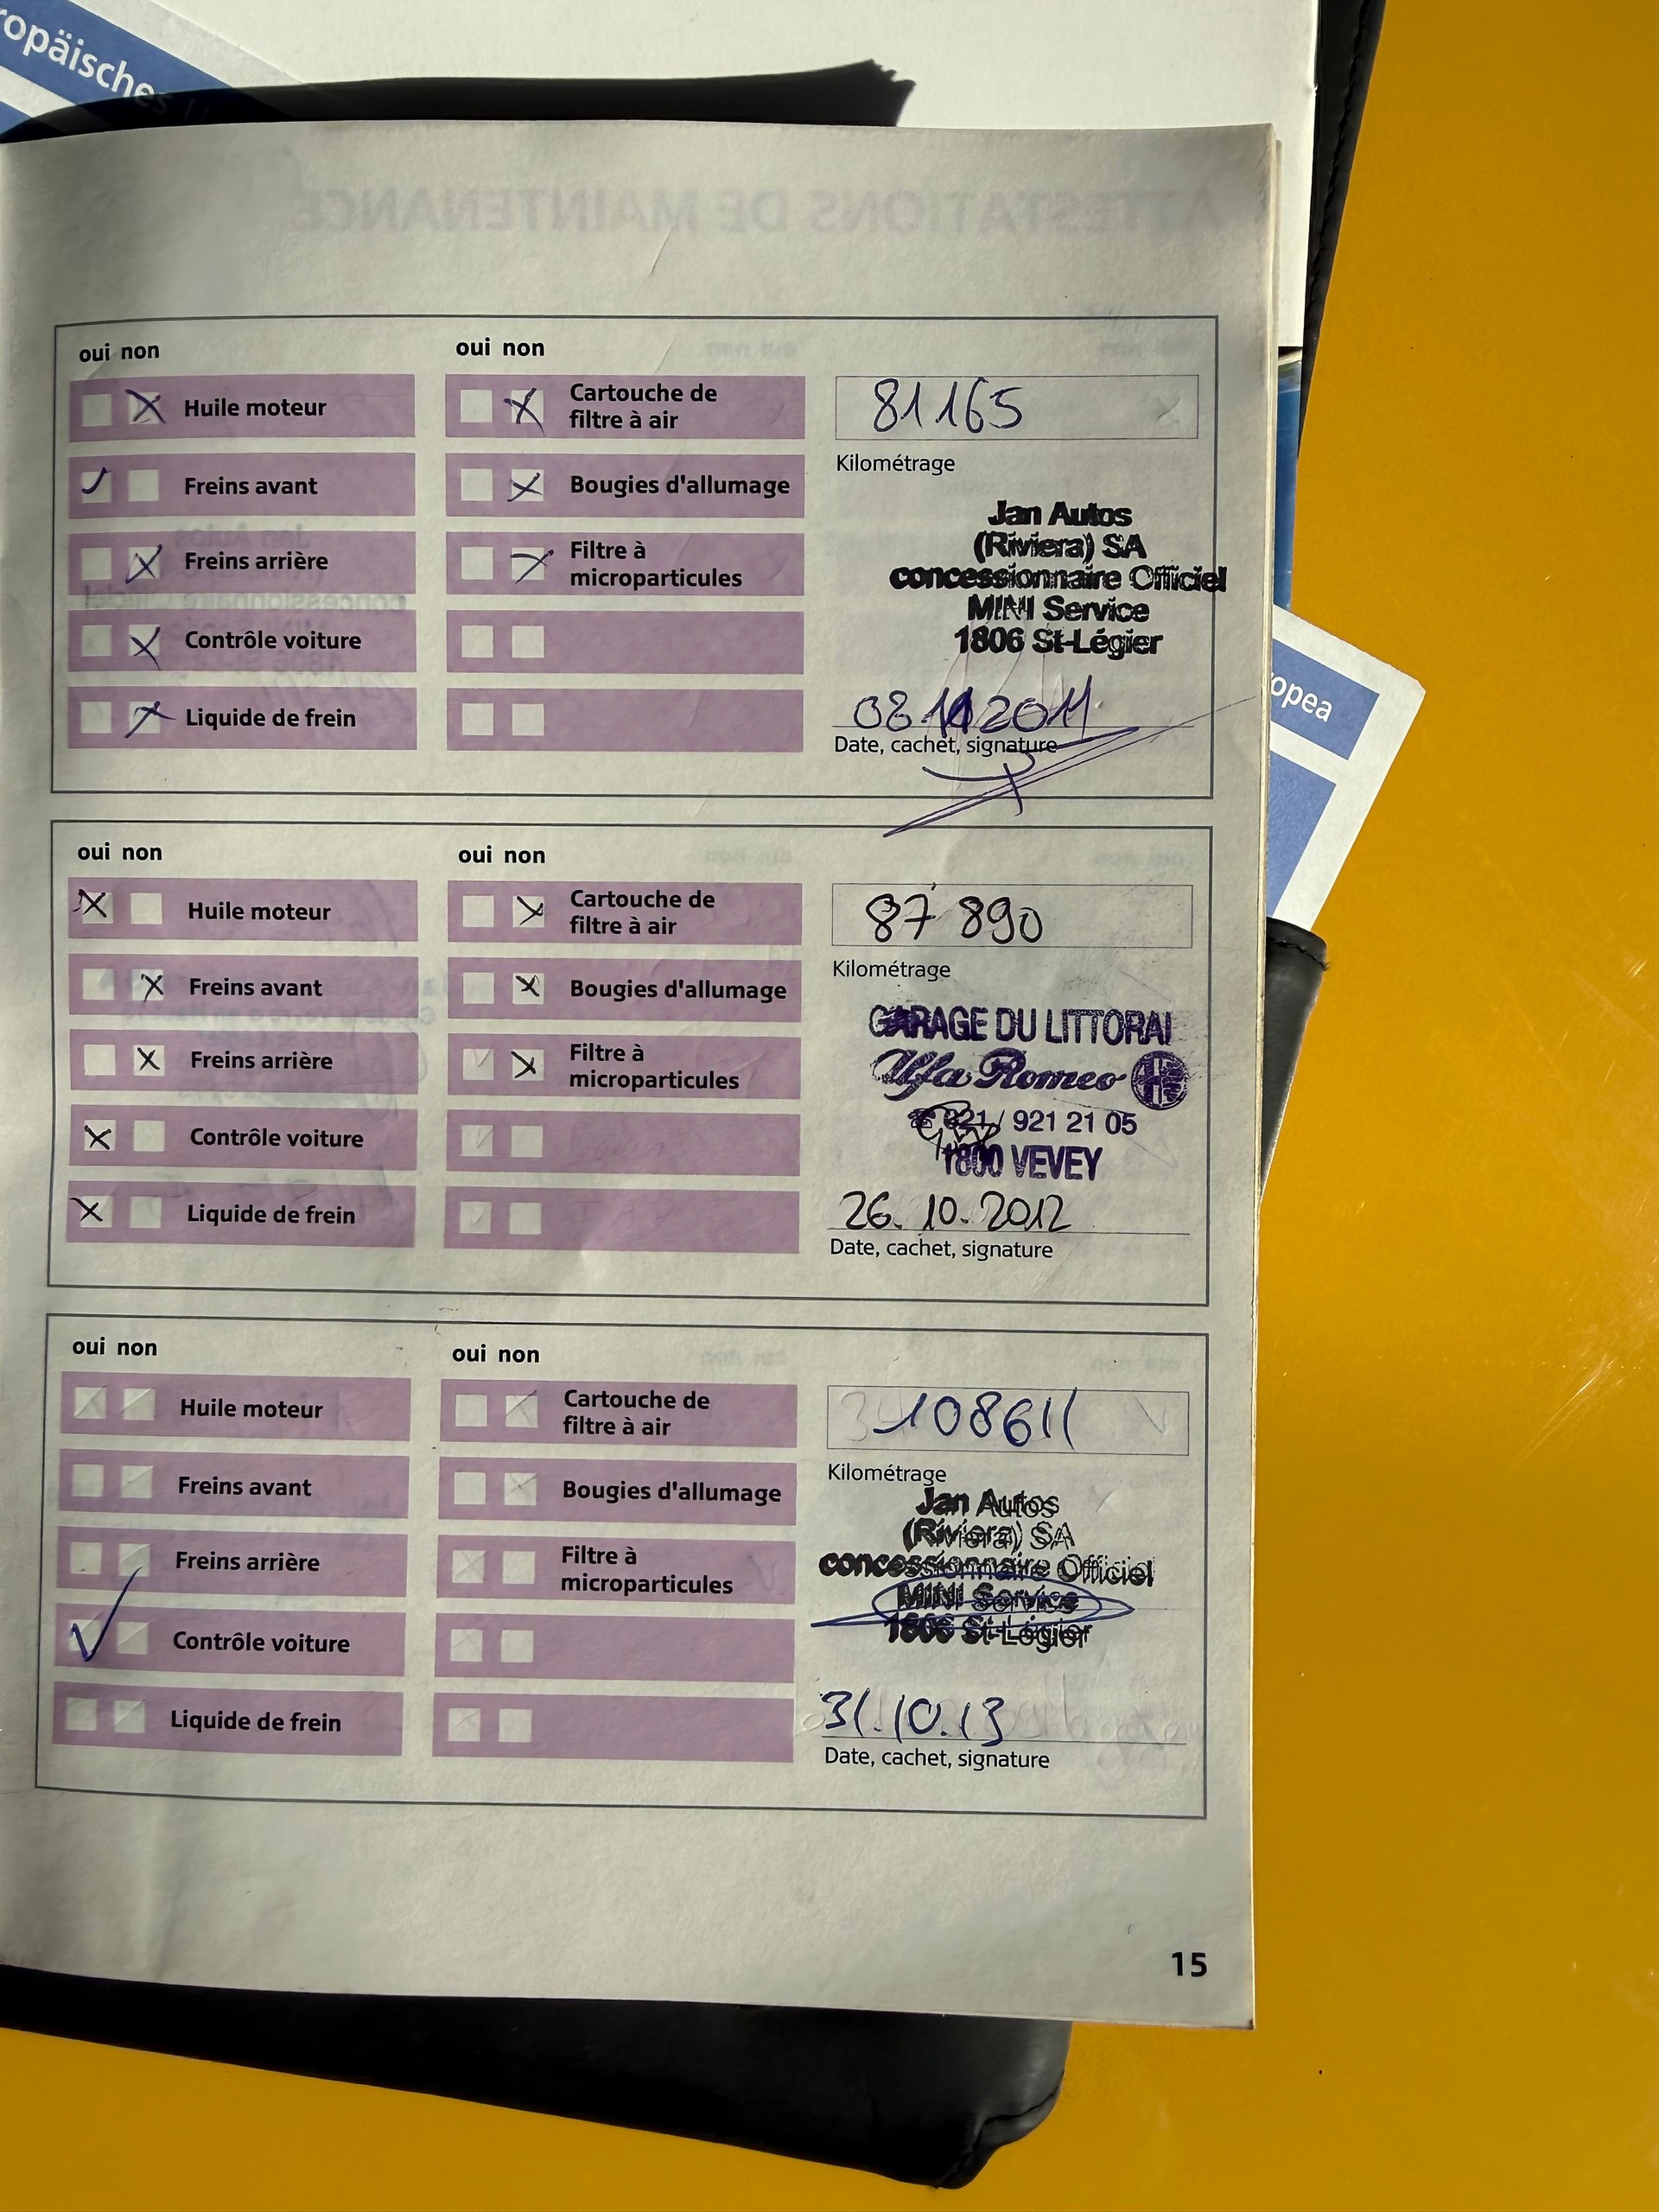 ropäisches
ATTESTATIONS DE MAINTENANCE
oui non
oui non
Huile moteur
Cartouche de
filtre à air
81165
Kilométrage
Freins avant
Bougies d'allumage
Jan Autos
(Riviera) SA
concessionnaire Officiel
MINI Service
1806 St-Légier
Freins arrière
Filtre à
microparticules
Contrôle voiture
Liquide de frein
08 11 2011
Date, cachet, signature
opea
oui non
oui non
Huile moteur
Cartouche de
filtre à air
87 890
Kilométrage
Freins avant
Bougies d'allumage
GARAGE DU LITTORAL
Alfa Romeo
021 / 921 21 05
1800 VEVEY
Freins arrière
Filtre à
microparticules
Contrôle voiture
Liquide de frein
26. 10. 2012
Date, cachet, signature
oui non
oui non
Huile moteur
Cartouche de
filtre à air
108611
Kilométrage
Freins avant
Bougies d'allumage
Jan Autos
(Riviera) SA
concessionnaire Officiel
MINI Service
1806 St-Légier
Freins arrière
Filtre à
microparticules
Contrôle voiture
Liquide de frein
31.10.13
Date, cachet, signature
15